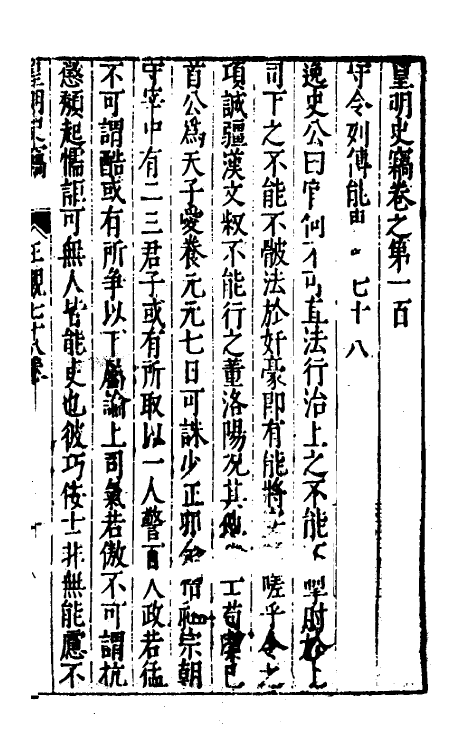 皇明史竊卷之第一百
守令列傳能 七十八
逸史公曰官何不可直法行治上之不能 掣肘於上
司下之不能不骫法於奸豪即有能將 嗟乎令之
項誠疆漢文叔不能行之董洛陽况其他 工苟禦已
首公為天子愛養元元七日可誅少正邪 祖宗朝
守宰中有二三君子或有所取以一人警百人政若猛
不可謂酷或有所爭以下屬論上司氣若傲不可謂抗
懲頽起懦詎可無人皆能吏也彼巧佞士非無能慮不
皇明史竊 王觀七十八卷